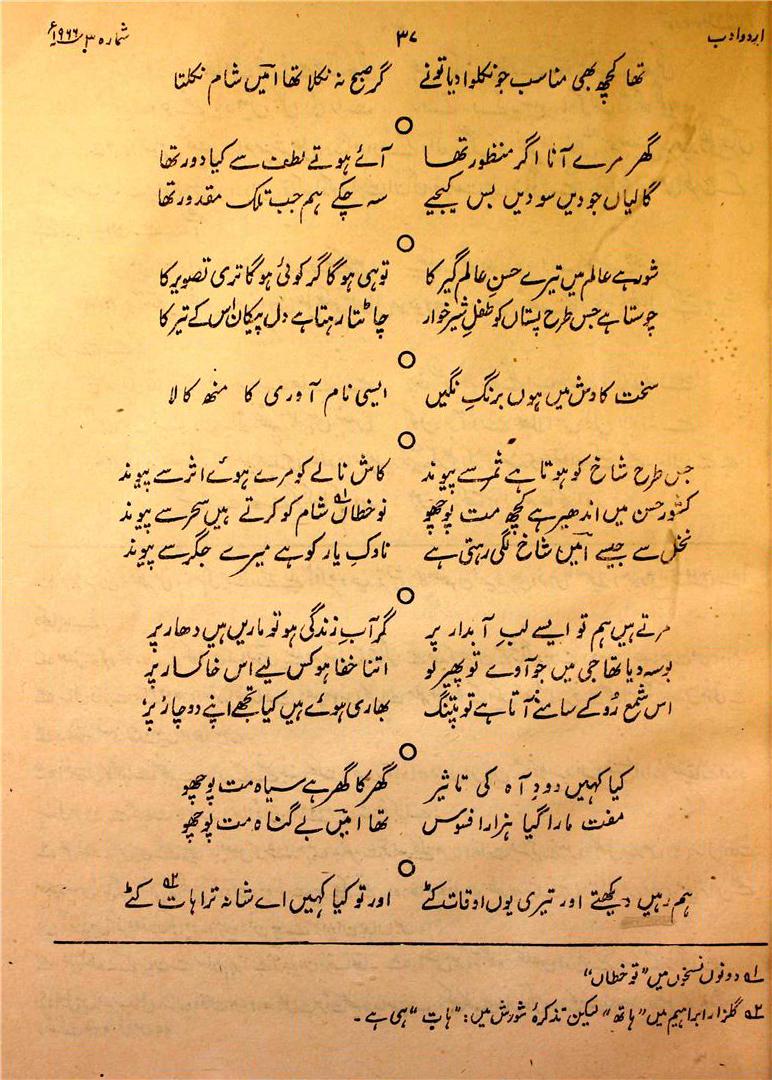 اردو ادب ۳۷ شمارہ ۳ ۱۹۶۶ء
تھا کچھ بھی مناسب جو نکلوا دیا تو نے گر صبح نہ نکلا تھا امیںؔ شام نکلتا
گھر مرے آنا اگر منظور تھا آئے ہوتے لطف سے کیا دور تھا
گالیاں جو دیں سو دیں بس کیجیے سہ چکے ہم جب تلک مقدور تھا
شور ہے عالم میں تیرے حسنِ عالم گیر کا تو ہی ہوگا گر کوئی ہوگا تری تصویر کا
چوستا ہے جس طرح پستاں کو طفلِ شیر خوار چاٹتا رہتا ہے دل پیکان اس کے تیر کا
سخت کاوش میں ہوں برنگِ نگیں ایسی نام آوری کا منھ کالا
جس طرح شاخ کو ہوتا ہے ثمر سے پیوند کاش نالے کو مرے ہوئے اثر سے پیوند
کشورِ حسن میں اندھیر ہے کچھ مت پوچھو نو خطاں۱ شام کو کرتے ہیں سحر سے پیوند
نخل سے جیسے امیںؔ شاخ لگی رہتی ہے ناوکِ یار کو ہے میرے جگر سے پیوند
مرتے ہیں ہم تو ایسے لبِ آبدار پر گر آبِ زندگی ہو تو ماریں ہیں دھار پر
بوسہ دیا تھا جی میں جو آوے تو پھیر لو اتنا خفا ہو کس لیے اس خاکسار پر
اس شمع رُو کے سامنے آتا ہے تو پتنگ بھاری ہوئے ہیں کیا تجھے اپنے دو چار پر
کیا کہیں دودِ آہ کی تاثیر گھر کا گھر ہے سیاہ مت پوچھو
مفت مارا گیا ہزار افسوس تھا امیںؔ بے گناہ مت پوچھو
ہم رہیں دیکھتے اور تیری یوں اوقات کٹے اور تو کیا کہیں اے شانہ ترا ہات۲ کٹے
۱ دونوں نسخوں میں "تو خطاں"
۲ گلزارِ ابراہیم میں "ہاتھ" لیکن تذکرۂ شورش میں: "ہات" ہی ہے۔